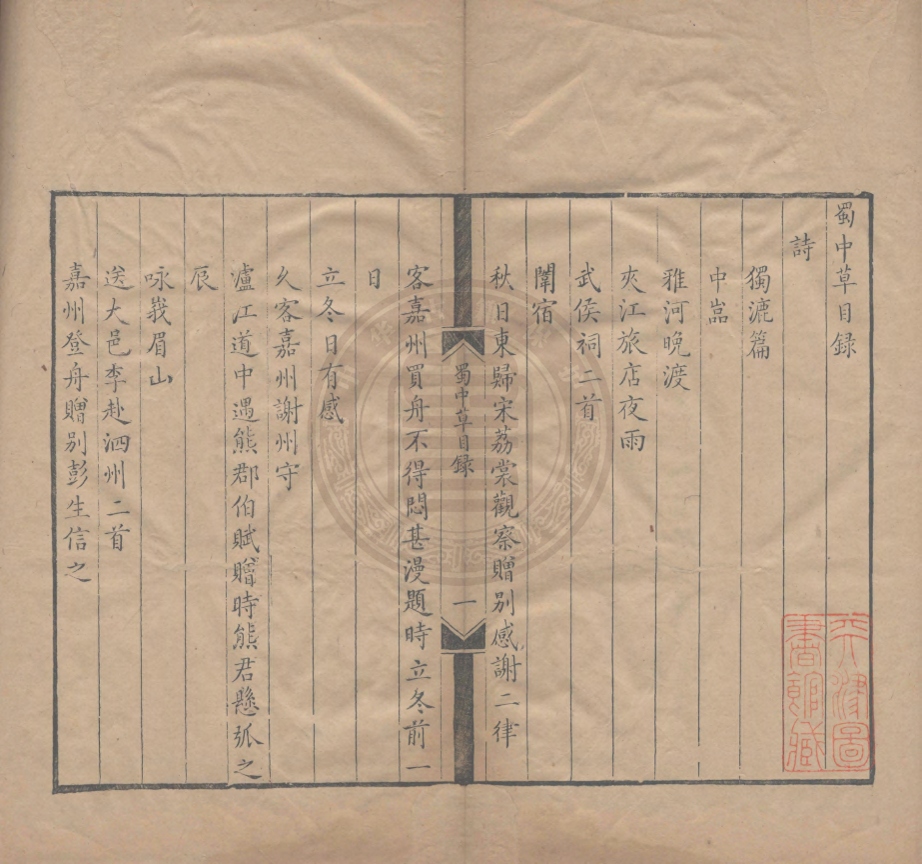 蜀中草目録
詩
獨漉篇
中嵓
雅河晚渡
夾江旅店夜雨
武侯祠二首
闈宿
秋日東歸宋荔裳觀察贈別感謝二律
蜀中草目録
一
客嘉州買舟不得悶甚漫題時立冬前一
日
立冬日有感
久客嘉州謝州守
瀘江道中遇熊郡伯賦贈時熊君懸弧之
辰
咏峩眉山
送大邑李赴泗州二首
嘉州登舟贈別彭生信之
天津圖
書館藏